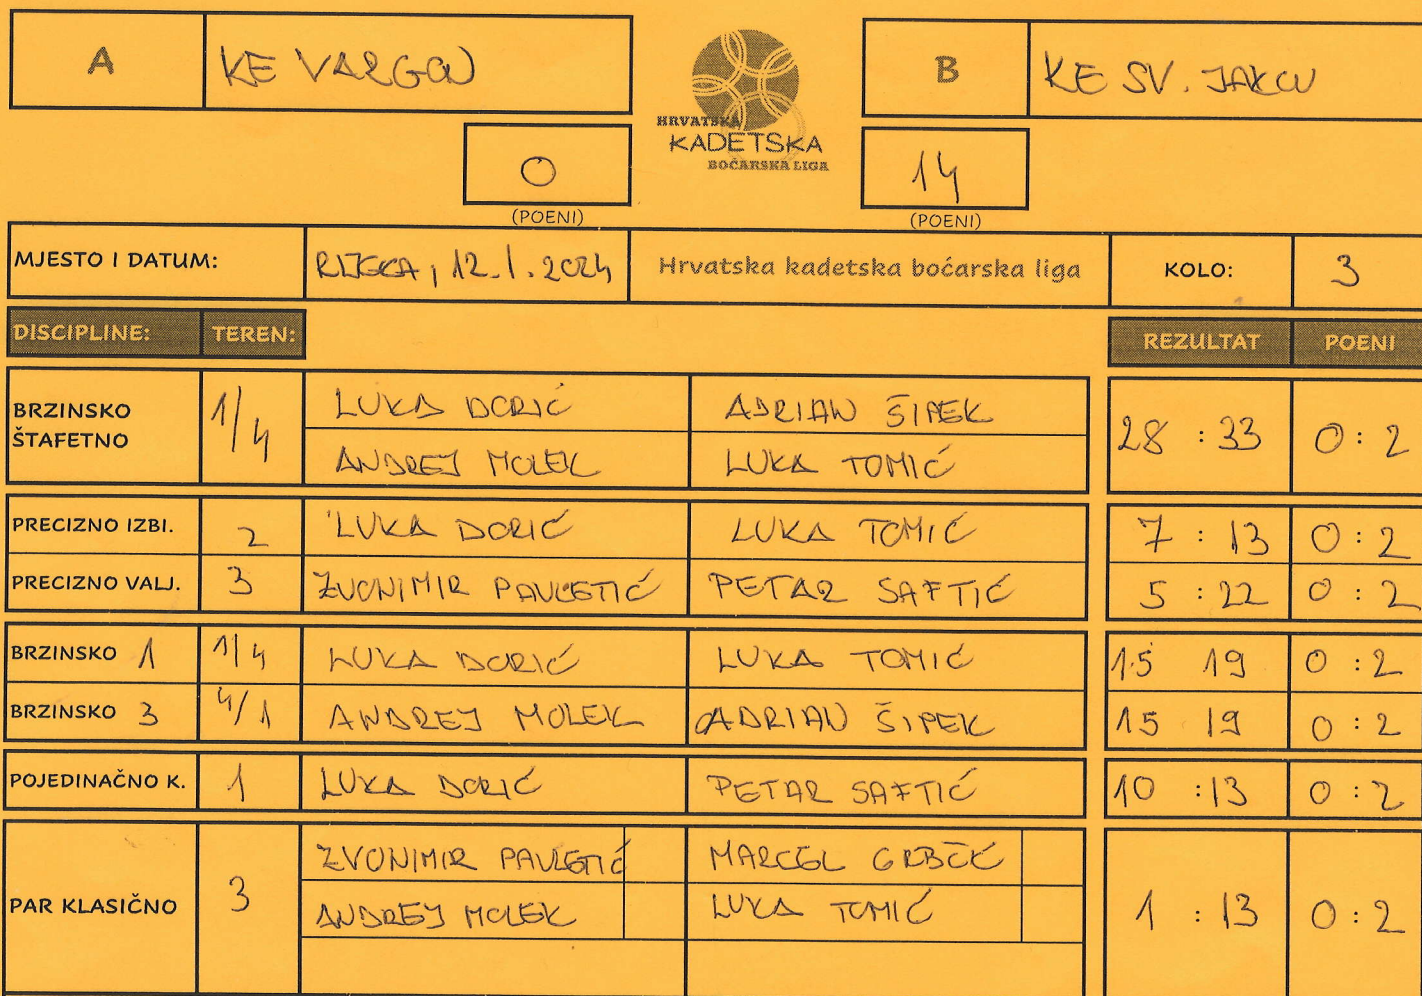 A KE VARGON B KE SV. JAKOV
HRVATSKA
KADETSKA
BOĆARSKA LIGA
0 14
(POENI) (POENI)
MJESTO I DATUM: RIJEKA, 12.1.2024 Hrvatska kadetska boćarska liga KOLO: 3
DISCIPLINE: TEREN: REZULTAT POENI
BRZINSKO ŠTAFETNO 1/4 LUKA DORIĆ ADRIAN ŠIPEK 28 : 33 0 : 2
ANDREJ MOLEK LUKA TOMIĆ
PRECIZNO IZBI. 2 LUKA DORIĆ LUKA TOMIĆ 7 : 13 0 : 2
PRECIZNO VALJ. 3 ZVONIMIR PAVLETIĆ PETAR SAFTIĆ 5 : 22 0 : 2
BRZINSKO 1 1/4 LUKA DORIĆ LUKA TOMIĆ 15 19 0 : 2
BRZINSKO 3 4/1 ANDREJ MOLEK ADRIAN ŠIPEK 15 19 0 : 2
POJEDINAČNO K. 1 LUKA DORIĆ PETAR SAFTIĆ 10 : 13 0 : 2
PAR KLASIČNO 3 ZVONIMIR PAVLETIĆ MARCEL 1 : 13 0 : 2
ANDREJ MOLEK LUKA TOMIĆ